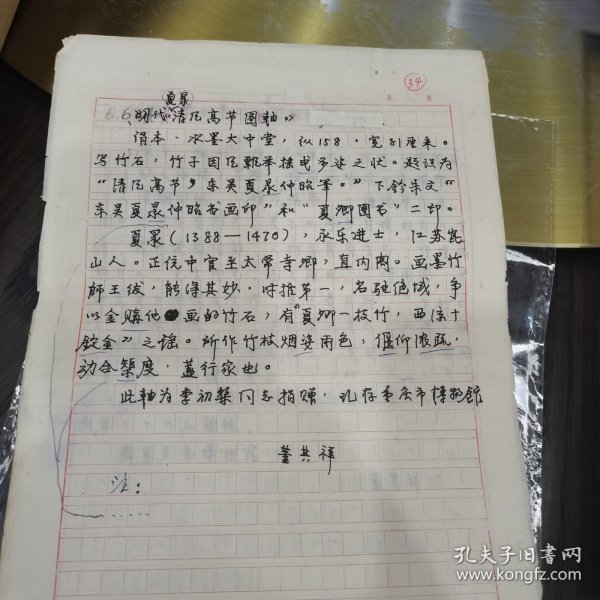 34
夏㫤
6.6.明代《清风高节图轴》
绢本、水墨大中堂，纵158，宽81厘米。
写竹石，竹子因风飘举摇成多姿之状。题识为
“清风高节，东吴夏㫤仲昭笔。”下钤朱文“
东吴夏㫤仲昭书画印”和“夏卿图书”二印。
夏㫤（1388—1470），永乐进士，江苏昆
山人。正统中官至太常寺卿，直内阁。画墨竹
师王绂，能得其妙，时推第一，名驰绝域，争
以金购他画的竹石，有“夏卿一枝竹，西凉十
锭金”之谣。所作竹枝烟姿雨色，偃仰浓疏，
动合榘度，盖行家也。
此軸为李初梨同志捐赠，现存重庆市博物馆
董其祥
注：
......
孔夫子旧书网
www.kongfz.com